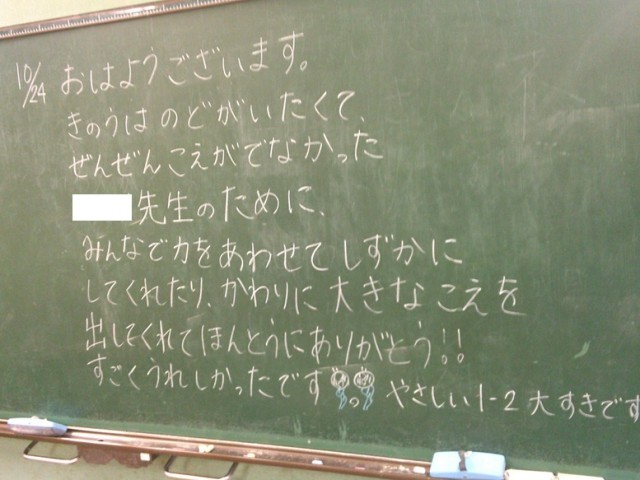 10/24 おはようございます。
きのうは のどがいたくて、
ぜんぜんこえがでなかった
先生のために、
みんなで力をあわせて しずかに
してくれたり、かわりに 大きな こえを
出してくれて ほんとうに ありがとう!!
すごくうれしかったです やさしい 1-2 大すきです